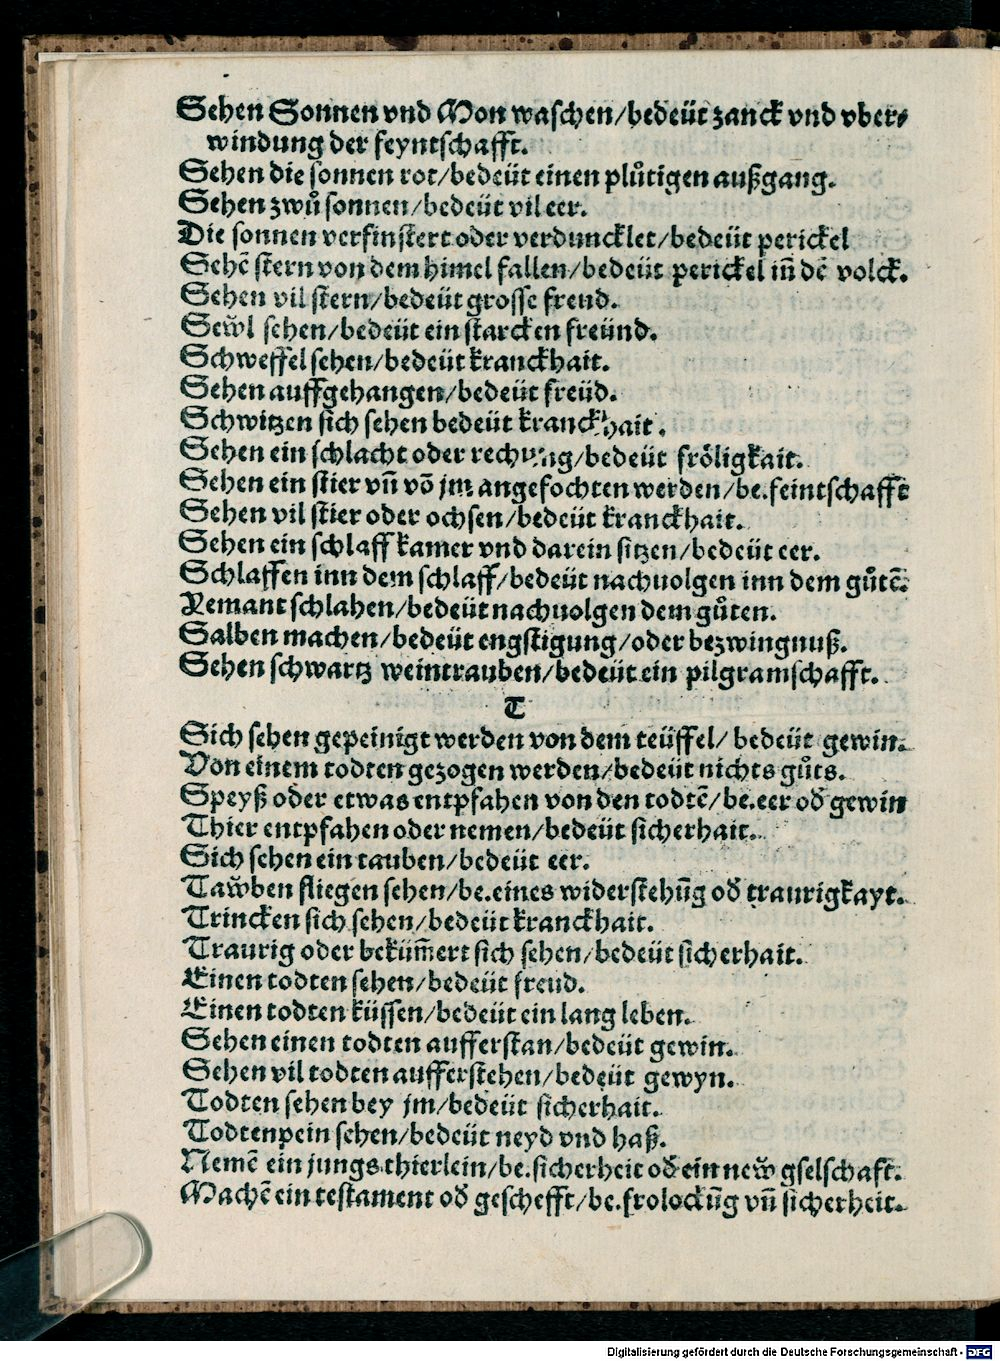 Sehen Sonnen vnd Mon waschen/bedeüt zanck vnd vber⸗
windung der feyntschafft.
Sehen die sonnen rot/bedeüt einen plůtigen außgang.
Sehen zwů sonnen/bedeüt vil eer.
Die sonnen verfinstert oder verduncklet/bedeüt perickel
Sehē stern von dem himel fallen/bedeüt perickel iñ dē volck.
Sehen vil stern/bedeüt grosse freud.
Sewͤl sehen/bedeüt ein starcken freünd.
Schweffel sehen/bedeüt kranckhait.
Sehen auffgehangen/bedeüt freüd.
Schwitzen sich sehen bedeüt kranckhait.
Sehen ein schlacht oder rechung/bedeüt fröligkait.
Sehen ein stier vñ võ jm angefochten werden/be.feintschafft
Sehen vil stier oder ochsen/bedeüt kranckhait.
Sehen ein schlaff kamer vnd darein sitzen/bedeüt eer.
Schlaffen inn dem schlaff/bedeüt nachuolgen inn dem gůtē.
Yemant schlahen/bedeüt nachuolgen dem gůten.
Salben machen/bedeüt engstigung/oder bezwingnuß.
Sehen schwartz weintrauben/bedeüt ein pilgramschafft.
T
Sich sehen gepeinigt werden von dem teüffel/ bedeüt gewin.
Von einem todten gezogen werden/bedeüt nichts gůts.
Speyß oder etwas entpfahen von den todtē/be.eer od̕ gewin
Thier entpfahen oder nemen/bedeüt sicherhait.
Sich sehen ein tauben/bedeüt eer.
Tawͤben fliegen sehen/be.eines widerstehūg od̕ traurigkayt.
Trincken sich sehen/bedeüt kranckhait.
Traurig oder bekūm̄ert sich sehen/bedeüt sicherhait.
Einen todten sehen/bedeüt freud.
Einen todten küssen/bedeüt ein lang leben.
Sehen einen todten aufferstan/bedeüt gewin.
Sehen vil todten aufferstehen/bedeüt gewyn.
Todten sehen bey jm/bedeüt sicherhait.
Todtenpein sehen/bedeüt neyd vnd haß.
Nemē ein jungs thierlein/be.sicherheit od̕ ein newͤ gselschafft.
Machē ein testament od̕ geschefft/be.frolockūg vñ sicherheit.
Digitalisierung gefördert durch die Deutsche Forschungsgemeinschaft - DFG